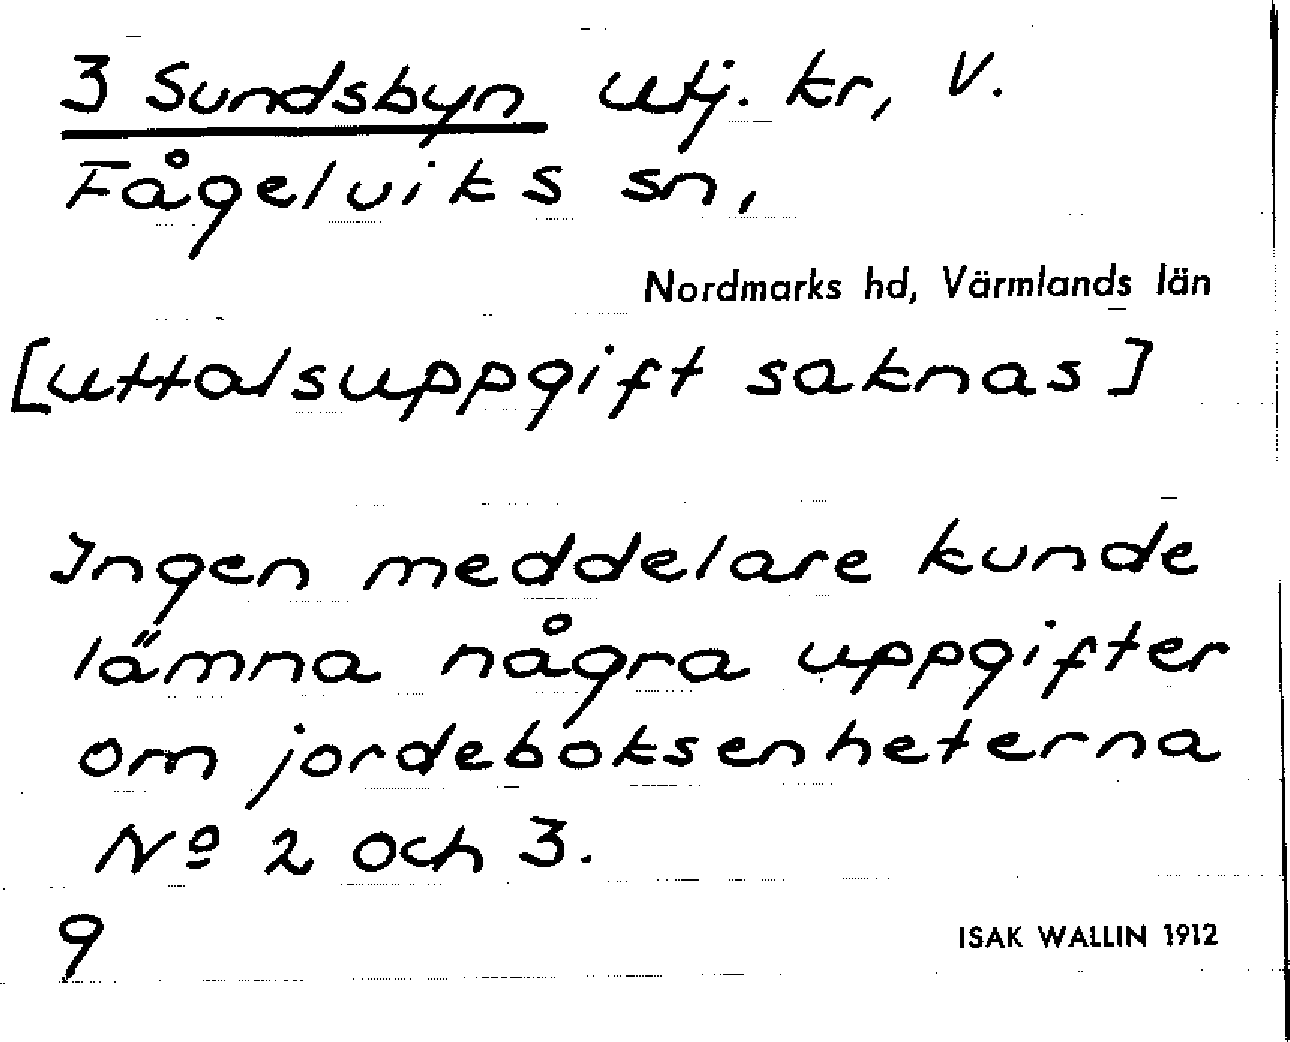 3 Sundsbyn utj. kr, V.
Fågelviks sn,
Nordmarks hd, Värmlands län
[uttalsuppgift saknas]
Ingen meddelare kunde
lämna några uppgifter
om jordeboksenheterna
Nº 2 och 3.
9
ISAK WALLIN 1912